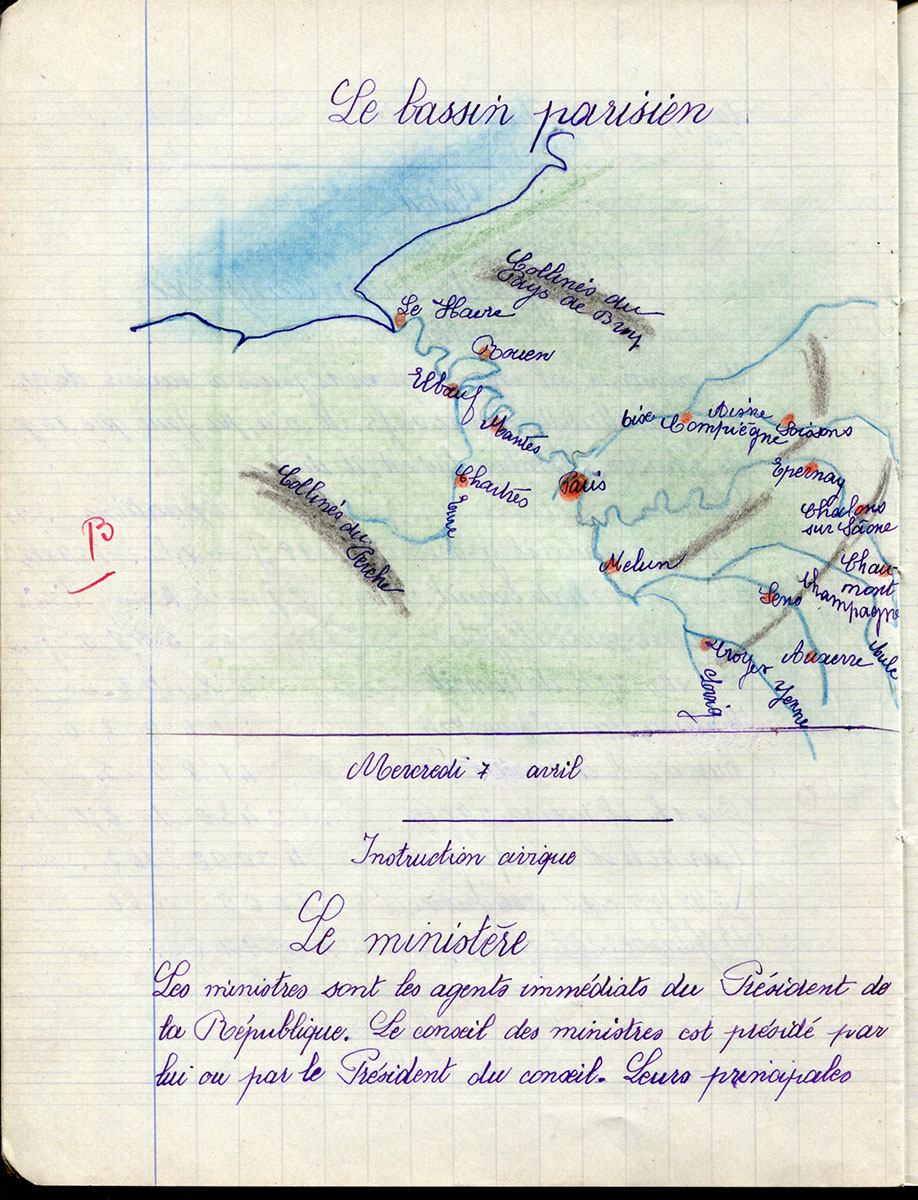 Le bassin parisien
Collines du
Pays de Bray
Le Havre
Rouen
Elbeuf
Mantes
Oise
Aisne
Compiègne
Soissons
Collines du
Perche
Chartres
Paris
Epernay
Chalons
sur Sâone
B
Melun
Sens
Champagne
Chau-
mont
Troyes
Auxerre
Aube
Loing
Yonne
Mercredi 7 avril
Instruction civique
Le ministère
Les ministres sont les agents immédiats du Président de
la République. Le conseil des ministres est présidé par
lui ou par le Président du conseil. Leurs principales